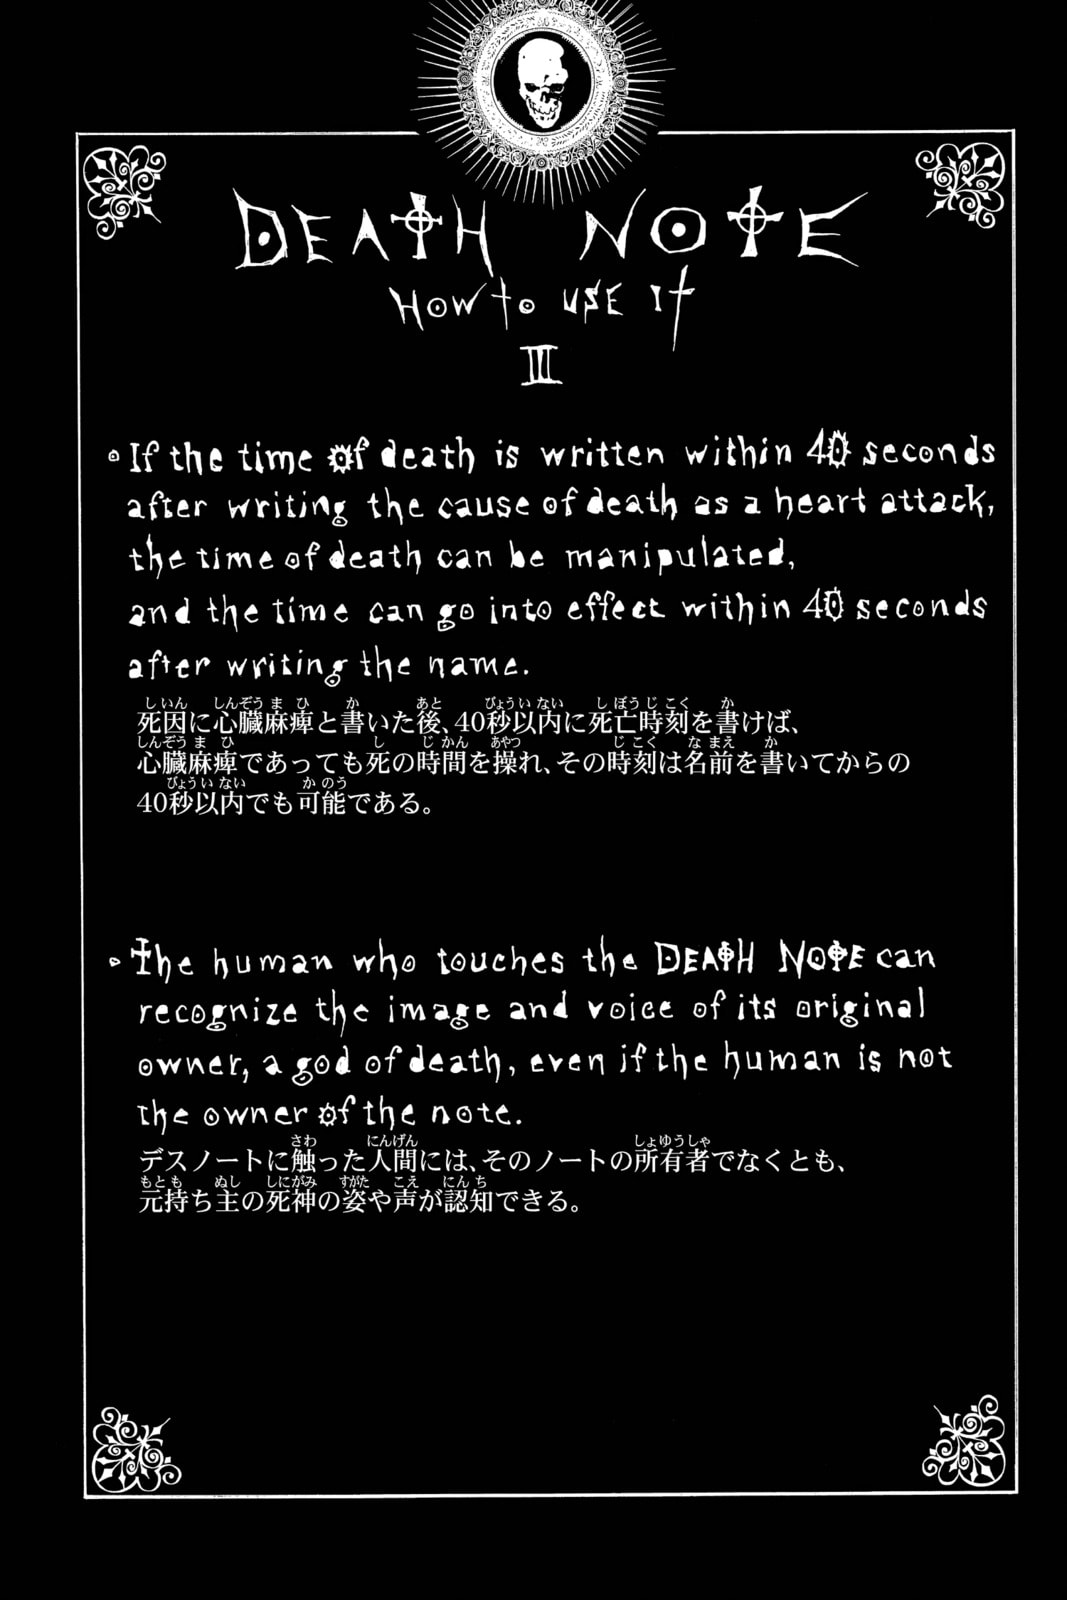 DEATH NOTE
HOW to USE It
III
If the time of death is written within 40 seconds
after writing the cause of death as a heart attack,
the time of death can be manipulated,
and the time can go into effect within 40 seconds
after writing the name.
しいん しんぞうまひ か あと びょういない しぼうじこく か
死因に心臓麻痺と書いた後、40秒以内に死亡時刻を書けば、
しんぞうまひ し じかん あやつ じこく なまえ か
心臓麻痺であっても死の時間を操れ、その時刻は名前を書いてからの
びょういない かのう
40秒以内でも可能である。
The human who touches the DEATH NOTE can
recognize the image and voice of its original
owner, a god of death, even if the human is not
the owner of the note.
さわ にんげん しょゆうしゃ
デスノートに触った人間には、そのノートの所有者でなくとも、
もとも ぬし しにがみ すがた こえ にんち
元持ち主の死神の姿や声が認知できる。